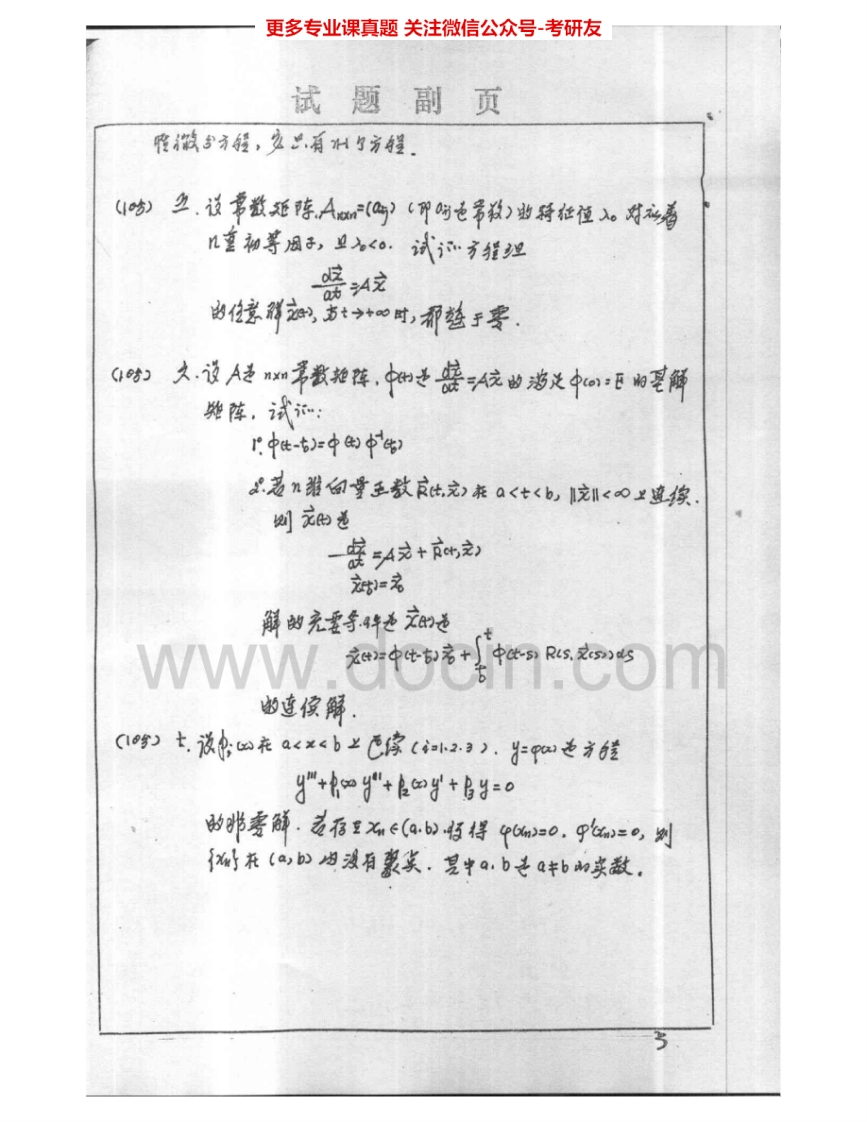 更多专业课真题 关注微信公众号-考研友
试 题 副 页
性微分方程，它只有n+1个方程．
(10分) 五．设常数矩阵 Aₙₓₙ=(aᵢⱼ) (即 aᵢⱼ 是常数) 的特征值 λ₀ 对应着
n重初等因子，且 λ₀<0. 试证方程组
dx⃗/dt=Ax⃗
的任意解 x⃗(t)，当 t→+∞ 时，都趋于零．
(10分) 六．设 A是 n×n 常数矩阵．φ(t)是 dx⃗/dt=Ax⃗ 的满足 φ(0)=E 的基解
矩阵．试证:
1°. φ(t-t₀)=φ(t)φ⁻¹(t₀)
2°. 若n维向量函数 R⃗(t,x⃗) 在 a<t<b, ‖x⃗‖<∞ 上连续．
则 x⃗(t)是
dx⃗/dt=Ax⃗+R⃗(t,x⃗)
x⃗(t₀)=x⃗₀
解的充要条件是 x⃗(t)是
x⃗(t)=φ(t-t₀)x⃗₀+∫ₜ₀ᵗ φ(t-s) R(s, x⃗(s))ds
www.docin.com
的连续解．
(10分) 七．设 pᵢ(x) 在 a<x<b 上连续 (i=1.2.3). y=φ(x) 是方程
y'''+p₁(x)y''+p₂(x)y'+p₃y=0
的非零解．若存在 xₙ∈(a.b) 使得 φ(xₙ)=0. φ'(xₙ)=0, 则
{xₙ} 在 (a,b) 内没有聚点．其中 a.b 是 a≠b 的实数．
3